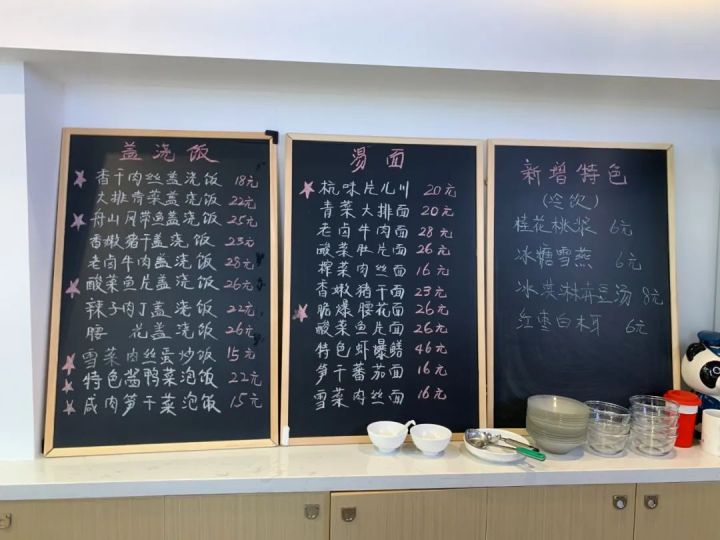 盖浇饭
香干肉丝盖浇饭 18元
大排青菜盖浇饭 22元
舟山风带鱼盖浇饭 25元
香嫩猪干盖浇饭 23元
老卤牛肉盖浇饭 28元
酸菜鱼片盖浇饭 26元
辣子肉丁盖浇饭 22元
腰花盖浇饭 26元
雪菜肉丝蛋炒饭 15元
特色酱鸭菜泡饭 22元
咸肉笋干菜泡饭 15元
汤面
杭味片儿川 20元
青菜大排面 20元
老卤牛肉面 28元
酸菜肚片面 26元
榨菜肉丝面 16元
香嫩猪干面 23元
脆爆腰花面 26元
酸菜鱼片面 26元
特色虾爆鳝 46元
笋干蕃茄面 16元
雪菜肉丝面 16元
新增特色
(冷饮)
桂花桃浆 6元
冰糖雪燕 6元
冰淇淋麻豆汤 8元
红枣白木耳 6元